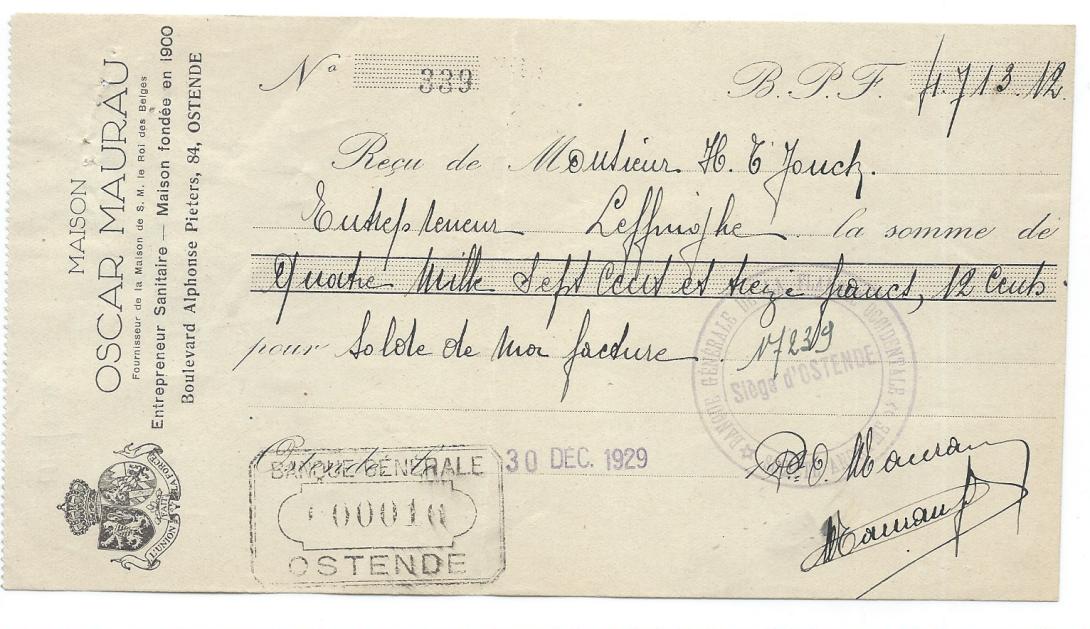 MAISON
OSCAR MAURAU
Fournisseur de la Maison de S. M. le Roi des Belges
Entrepreneur Sanitaire — Maison fondée en 1900
Boulevard Alphonse Pieters, 84, OSTENDE
L'UNION FAIT LA FORCE
Nº 339 B. P. F. 4.713.12
Reçu de Monsieur H.
Entrepreneur Leffinghe la somme de
Quatre Mille Sept Cent et treize francs, 12 Cents
pour Solde de ma facture Nº 239
BANQUE GÉNÉRALE
Siège d'OSTENDE
Ostende, le 30 DEC. 1929
BANQUE GÉNÉRALE
00010
OSTENDE
O. Maurau
Maurau